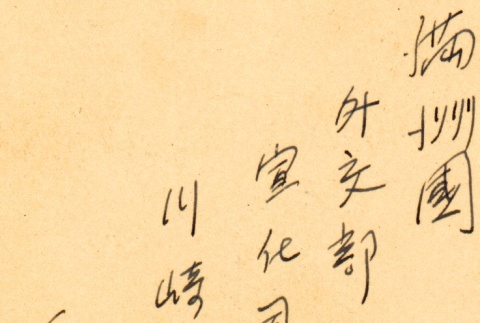 満洲國
外交部
宣化司
川崎